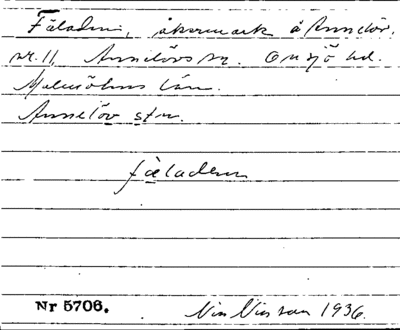 Fäladen, åkermark å Annelöv
nr. 11, Annelövs sn. Onsjö hd.
Malmöhus län.
Annelöv stn.
fäladen
Nr 5706. Nils Nilsson 1936.